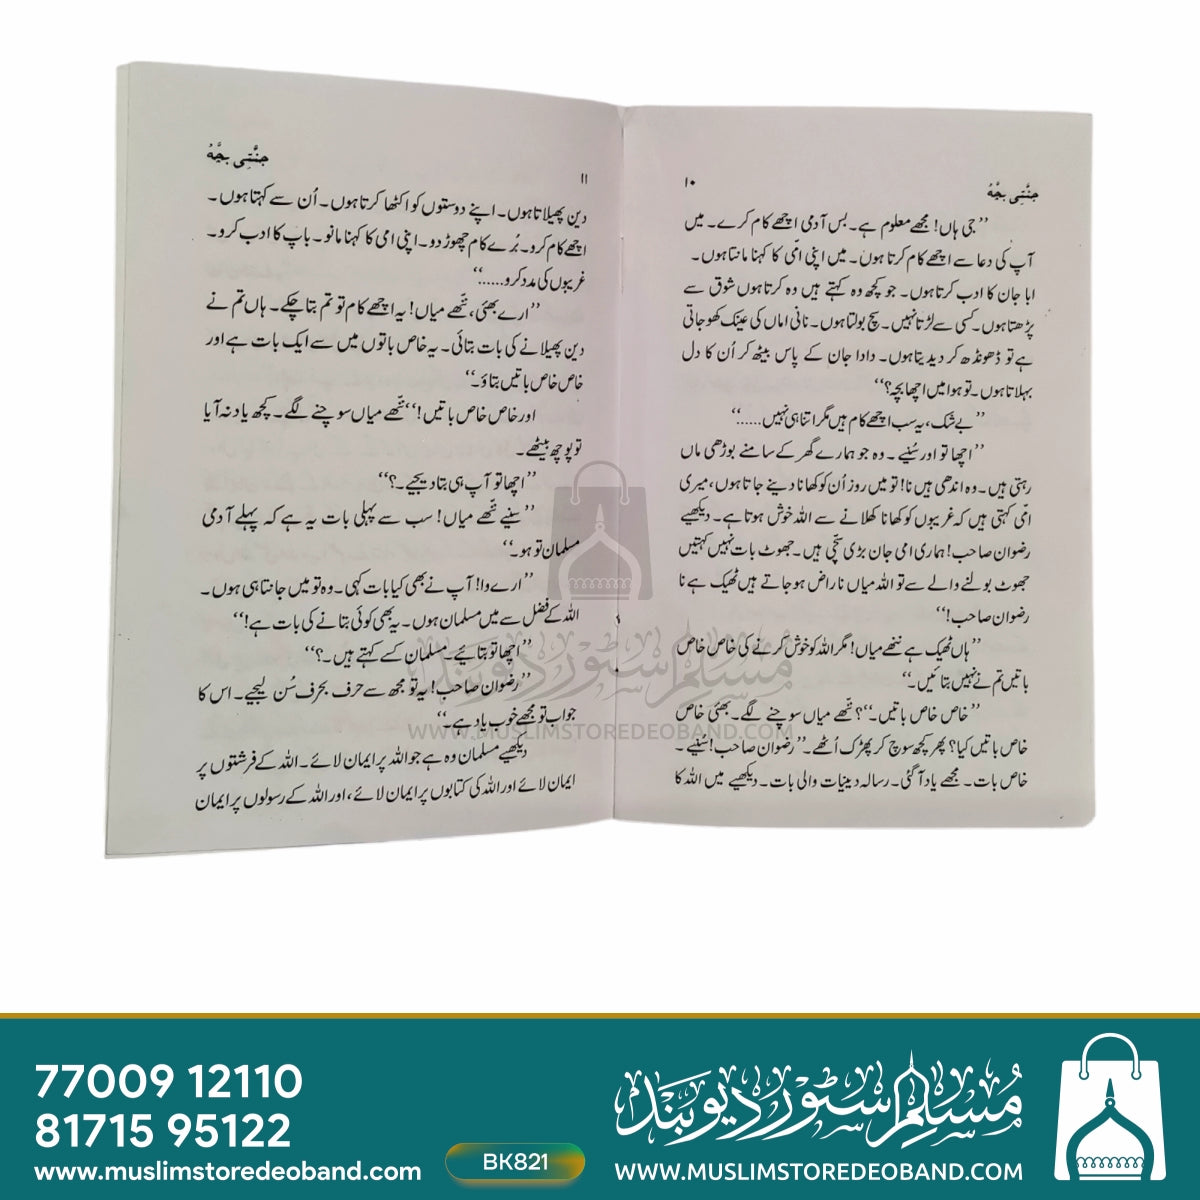 جنّتی بچّہ
۱۰
’’جی ہاں! مجھے معلوم ہے۔ بس آدمی اچھے کام کرے۔ میں
آپ کی دعا سے اچھے کام کرتا ہوں۔ میں اپنی امّی کا کہنا مانتا ہوں۔
ابا جان کا ادب کرتا ہوں۔ جو کچھ وہ کہتے ہیں وہ کرتا ہوں شوق سے
پڑھتا ہوں۔ کسی سے لڑتا نہیں۔ سچ بولتا ہوں۔ نانی اماں کی عینک کھو جاتی
ہے تو ڈھونڈھ کر دیدیتا ہوں۔ دادا جان کے پاس بیٹھ کر اُن کا دل
بہلاتا ہوں۔ تو ہوا میں اچھا بچہ؟‘‘
’’بے شک، یہ سب اچھے کام ہیں مگر اتنا ہی نہیں......‘‘
’’اچھا تو اور سُنیے۔ وہ جو ہمارے گھر کے سامنے بوڑھی ماں
رہتی ہیں۔ وہ اندھی ہیں نا! تو میں روز اُن کو کھانا دینے جاتا ہوں، میری
امّی کہتی ہیں کہ غریبوں کو کھانا کھلانے سے اللہ خوش ہوتا ہے۔ دیکھیے
رضوان صاحب! ہماری امی جان بڑی سچّی ہیں۔ جھوٹ بات نہیں کہتیں
جھوٹ بولنے والے سے تو اللہ میاں ناراض ہو جاتے ہیں ٹھیک ہے نا
رضوان صاحب!‘‘
’’ہاں ٹھیک ہے ننھے میاں! مگر اللہ کو خوش کرنے کی خاص خاص
باتیں تم نے نہیں بتائیں۔‘‘
’’خاص خاص باتیں۔‘‘؟ ننّھے میاں سوچنے لگے۔ بھئی خاص
خاص باتیں کیا؟ پھر کچھ سوچ کر پھڑک اُٹھے۔’’ رضوان صاحب! سُنیے۔
خاص بات۔ مجھے یاد آگئی۔ رسالہ دینیات والی بات۔ دیکھیے میں اللہ کا
جنّتی بچّہ
۱۱
دین پھیلاتا ہوں۔ اپنے دوستوں کو اکٹھا کرتا ہوں۔ اُن سے کہتا ہوں۔
اچھے کام کرو۔ بُرے کام چھوڑ دو۔ اپنی امی کا کہنا مانو۔ باپ کا ادب کرو۔
غریبوں کی مدد کرو......‘‘
’’ارے بھئی، ننّھے میاں! یہ اچھے کام تو تم بتا چکے۔ ہاں تم نے
دین پھیلانے کی بات بتائی۔ یہ خاص باتوں میں سے ایک بات ہے اور
خاص خاص باتیں بتاؤ۔‘‘
اور خاص خاص باتیں!‘‘ ننّھے میاں سوچنے لگے۔ کچھ یاد نہ آیا
تو پوچھ بیٹھے۔
’’اچھا تو آپ ہی بتا دیجیے۔؟‘‘
’’سنیے ننّھے میاں! سب سے پہلی بات یہ ہے کہ پہلے آدمی
مسلمان تو ہو۔‘‘
’’ارے وا! آپ نے بھی کیا بات کہی۔ وہ تو میں جانتا ہی ہوں۔
اللہ کے فضل سے میں مسلمان ہوں۔ یہ بھی کوئی بتانے کی بات ہے!‘‘
’’اچھا تو بتائیے۔ مسلمان کسے کہتے ہیں۔؟‘‘
’’رضوان صاحب! یہ تو مجھ سے حرف بحرف سُن لیجیے۔ اس کا
جواب تو مجھے خوب یاد ہے۔‘‘
دیکھیے مسلمان وہ ہے جو اللہ پر ایمان لائے۔ اللہ کے فرشتوں پر
ایمان لائے اور اللہ کی کتابوں پر ایمان لائے، اور اللہ کے رسولوں پر ایمان
مسلم سٹور دیوبند
WWW.MUSLIMSTOREDEOBAND.COM
77009 12110
81715 95122
www.muslimstoredeoband.com
BK821
مُسلم سٹور دیوبند
WWW.MUSLIMSTOREDEOBAND.COM